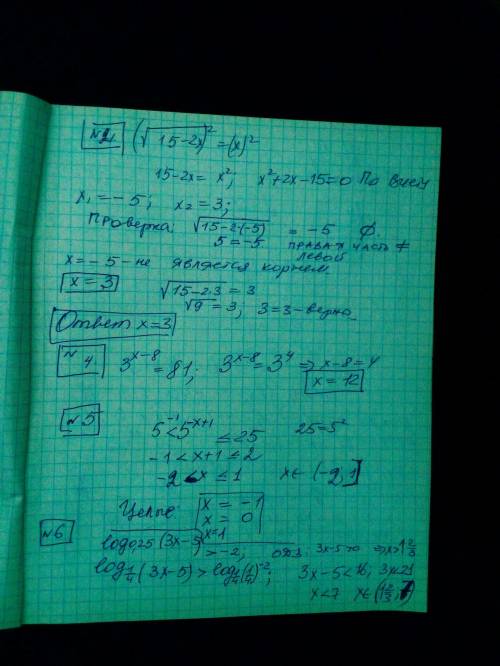 №2 (√15-2x)² = (x)²
15-2x = x²; x²+2x-15=0 По Виету
x₁=-5; x₂=3;
Проверка: √15-2(-5) = -5 ∅.
5=-5 правая часть ≠ левой
x=-5 - не является корнем
x=3 √15-2·3 = 3
√9 = 3, 3=3-верно
Ответ x=3
№4 3^(x-8) = 81; 3^(x-8) = 3⁴ ⇒ x-8=4
x=12
№5 5⁻¹ < 5^(x+1) ≤ 25 25=5²
-1 < x+1 ≤ 2
-2 < x ≤ 1 x∈ (-2,1]
Целые: x = -1
x = 0
x=1
№6 log₀,₂₅(3x-5) > -2, ОДЗ: 3x-5>0 ⇒ x>1 2/3
log₁/₄(3x-5) > log₁/₄(1/4)⁻²; 3x-5<16; 3x<21
x<7 x∈(1 2/3, 7)